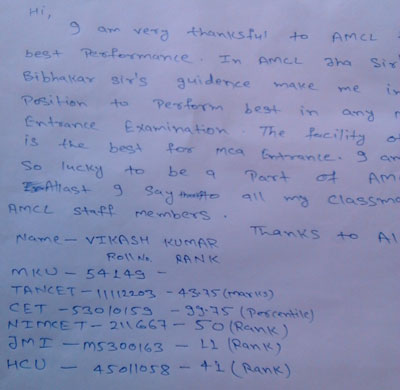 Hi,
I am very thanksful to AMCL
best Performance. In AMCL Jha Sir
Bibhakar sir's guidence make me in
Position to Perform best in any
Entrance Examination. The facility of
is the best for mca Entrance. I am
So lucky to be a Part of AMC
Atlast I say to all my Classm
AMCL staff members.
Thanks to Al
Name - VIKASH KUMAR
Roll No. RANK
MKU - 54149 -
TANCET - 11112203 - 43.75 (marks)
CET - 53010159 - 99.75 (Percentile)
NIMCET - 211667 - 50 (Rank)
JMI - M5300163 - 11 (Rank)
HCU - 45011058 - 41 (Rank)